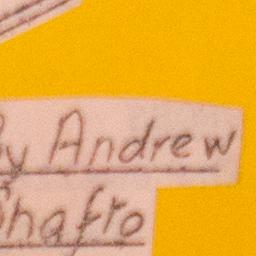 By Andrew
Shafto